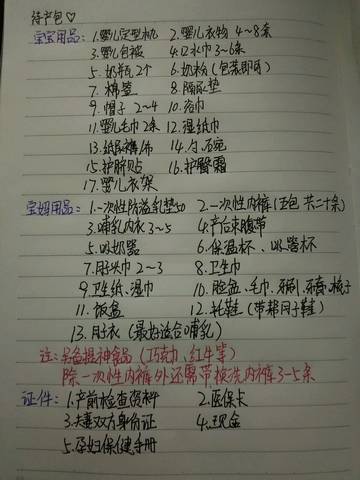 待产包♡
宝宝用品：1.婴儿定型枕 2.婴儿衣物 4~8条
3.婴儿包被 4.口水巾3~6条
5.奶瓶2个 6.奶粉(包装即可)
7.棉签 8.隔尿垫
9.帽子 2~4 10.浴巾
11.婴儿毛巾2条 12.湿纸巾
13.纸尿裤/布 14.勺、碗
15.护脐贴 16.护臀霜
17.婴儿衣架
宝妈用品：1.一次性防溢乳垫50 2.一次性内裤(五包 共二十条)
3.哺乳内衣3~5 4.产后束腹带
5.吸奶器 6.保温杯、吸管杯
7.月子巾 2~3 8.卫生巾
9.卫生纸、湿巾 10.脸盆、毛巾、牙刷、牙膏、梳子
11.饭盒 12.拖鞋(带帮月子鞋)
13.月子衣(最好适合哺乳)
注：另备提神食品(巧克力、红牛等)
除一次性内裤外还需带换洗内裤3-5条
证件：1.产前检查资料 2.医保卡
3.夫妻双方身份证 4.现金
5.孕妇保健手册